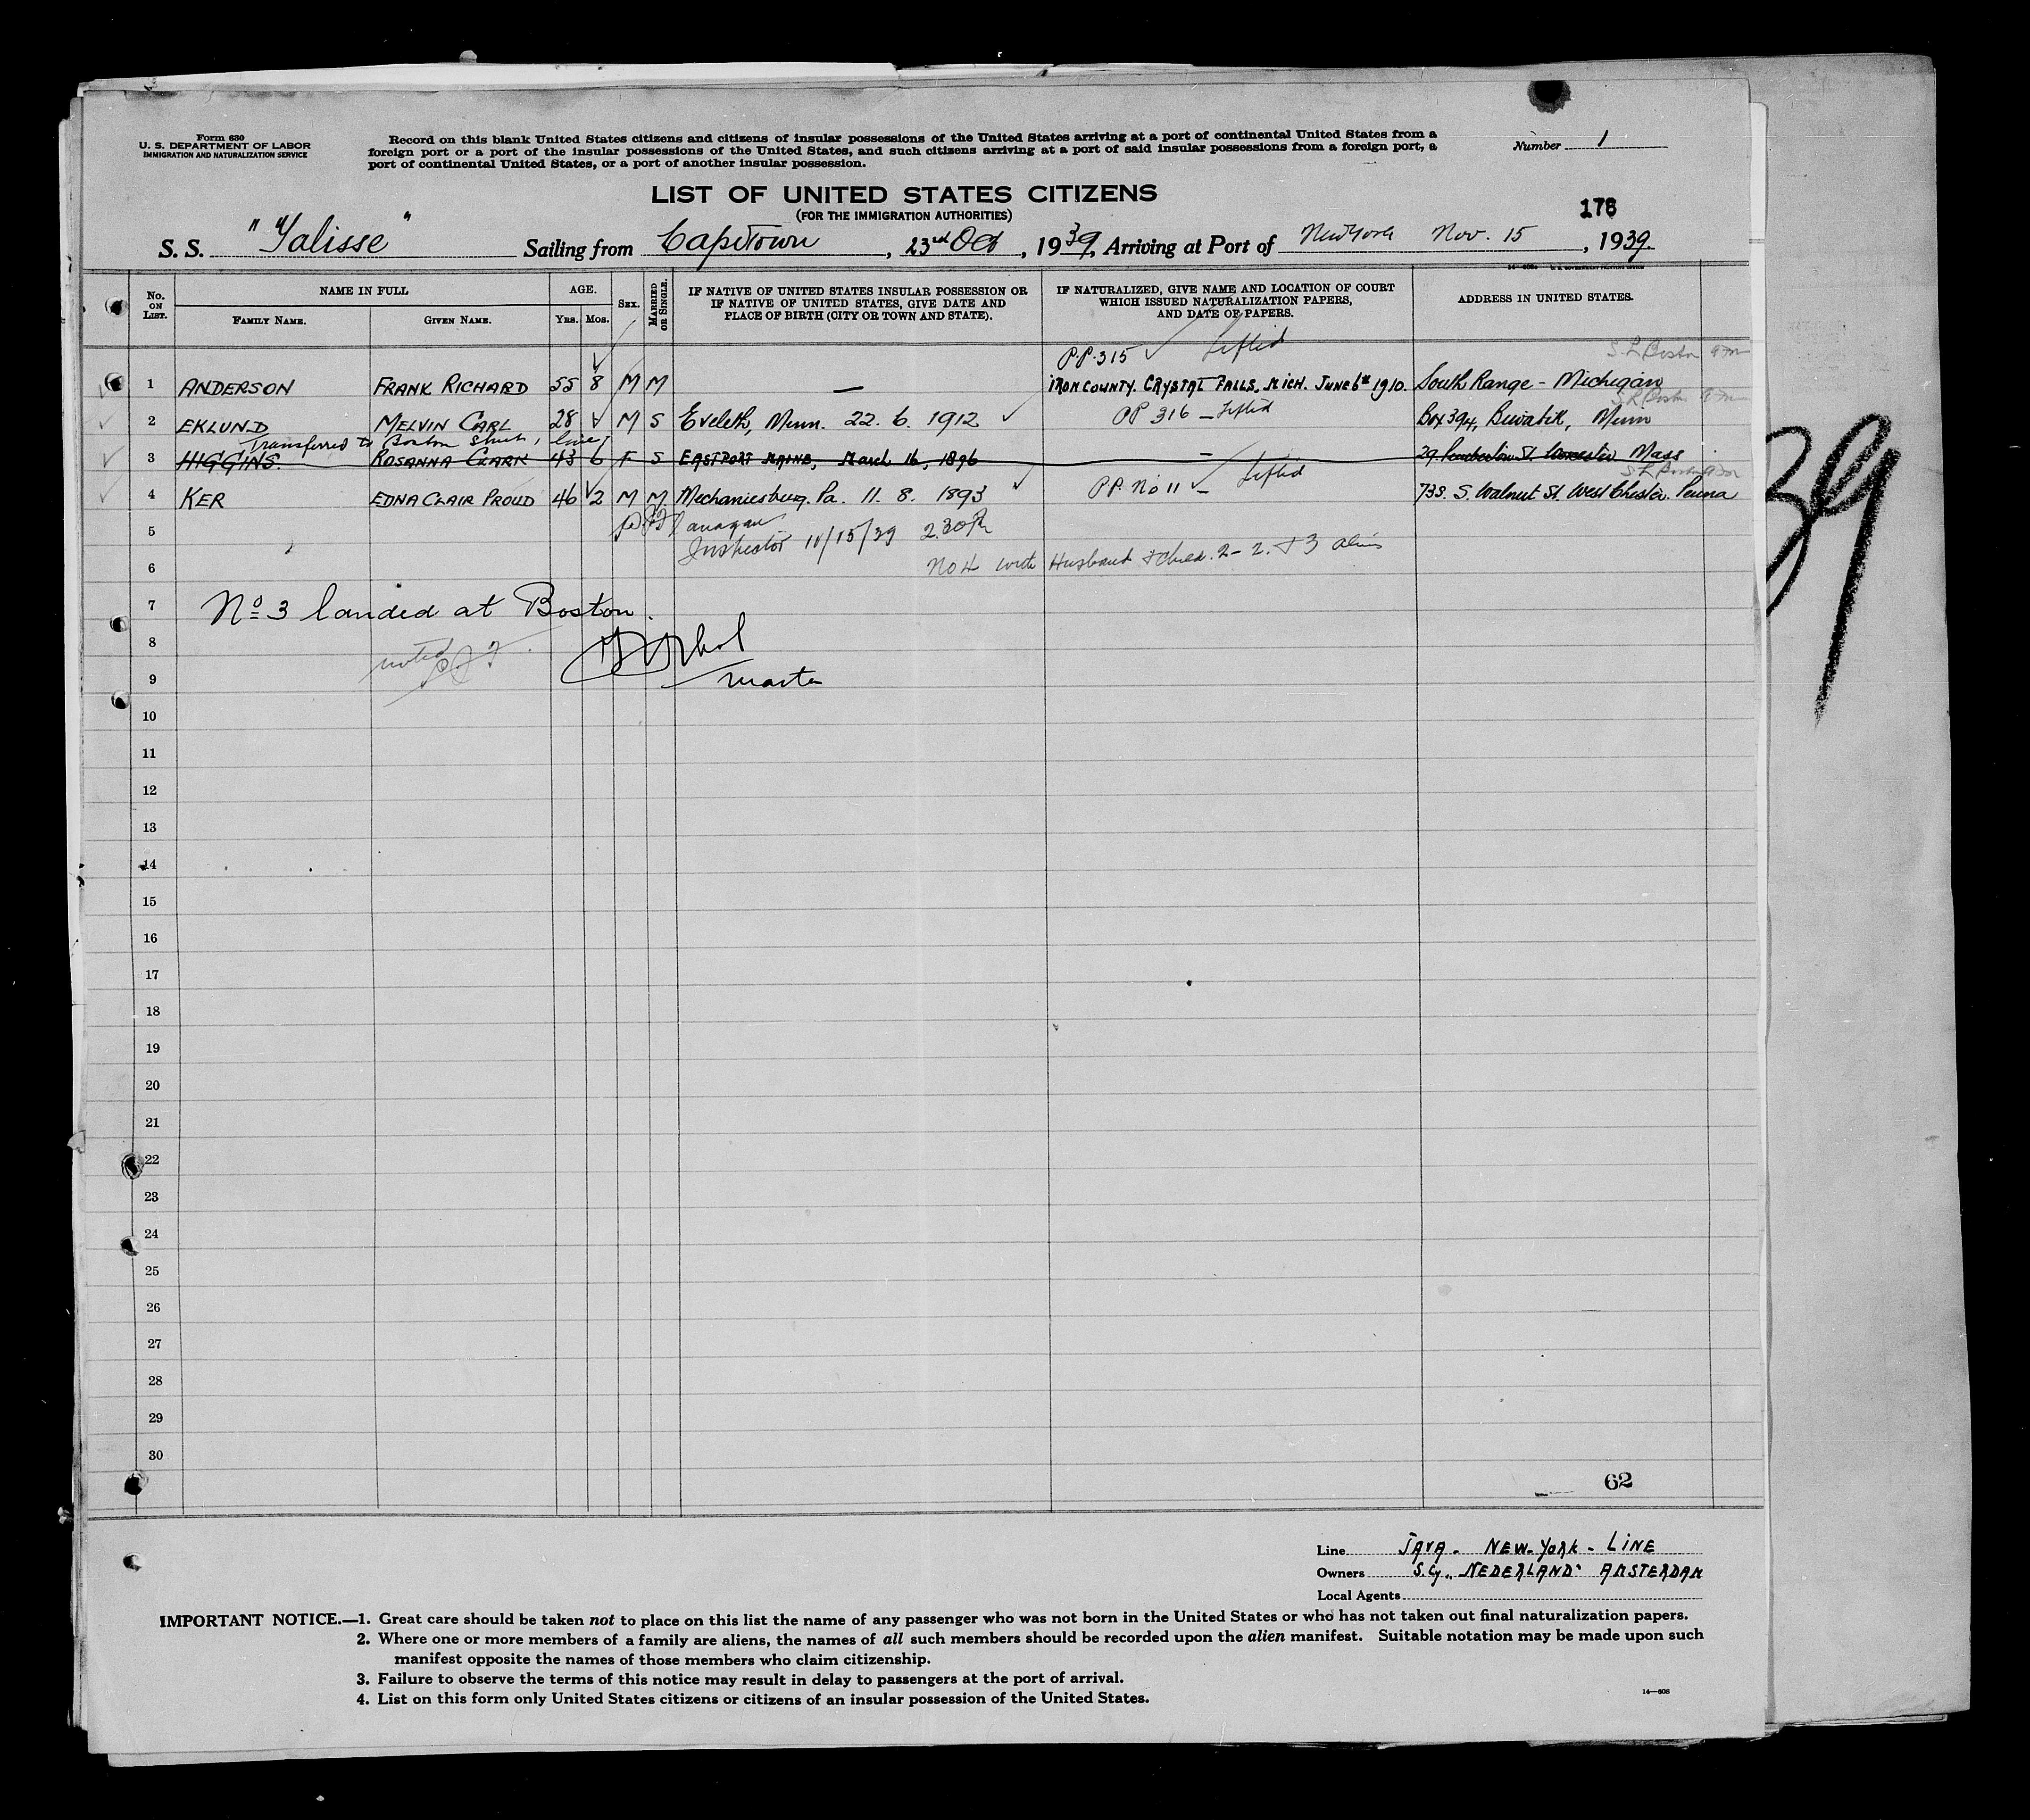 Form 630
U. S. DEPARTMENT OF LABOR
IMMIGRATION AND NATURALIZATION SERVICE
Record on this blank United States citizens and citizens of insular possessions of the United States arriving at a port of continental United States from a
foreign port or a port of the insular possessions of the United States, and such citizens arriving at a port of said insular possessions from a foreign port, a
port of continental United States, or a port of another insular possession.
Number 1
LIST OF UNITED STATES CITIZENS
(FOR THE IMMIGRATION AUTHORITIES)
178
S. S. "Talisse" Sailing from Capetown, 23rd Oct, 1939, Arriving at Port of New York Nov. 15, 1939.
No. ON LIST. NAME IN FULL AGE. SEX. MARRIED OR SINGLE. IF NATIVE OF UNITED STATES INSULAR POSSESSION OR IF NATIVE OF UNITED STATES, GIVE DATE AND PLACE OF BIRTH (CITY OR TOWN AND STATE). IF NATURALIZED, GIVE NAME AND LOCATION OF COURT WHICH ISSUED NATURALIZATION PAPERS, AND DATE OF PAPERS. ADDRESS IN UNITED STATES.
FAMILY NAME. GIVEN NAME. Yrs. Mos.
P.P. 315 ✓ Lifted
1 ANDERSON FRANK RICHARD 55 8 M M — IRON COUNTY. CRYSTAL FALLS, MICH. JUNE 6th 1910. South Range - Michigan
2 EKLUND MELVIN CARL 28 M S Eveleth, Minn. 22. 6. 1912 ✓ PP 316 - Lifted Box 394, Biwabik, Minn
Transferred to Boston
3 HIGGINS. ROSANNA CLARK 43 6 F S EASTPORT MAINE, March 16, 1896 - 29 Pemberton St. Worcester Mass
4 KER EDNA CLAIR PROUD 46 2 M M Mechanicsburg. Pa. 11. 8. 1893 ✓ PP. No 11 ✓ - Lifted 738. S. Walnut St. West Chester. Penna
5
Inspector 11/15/39 2.30 Pm
6 No 4 with Husband & child. 2 - 2. + 3 alien
7 No 3 landed at Boston.
8 noted
9 Master
10
11
12
13
14
15
16
17
18
19
20
21
22
23
24
25
26
27
28
29
30
62
39
Line JAVA - NEW-YORK - LINE
Owners S. Cy. "NEDERLAND" AMSTERDAM
Local Agents
IMPORTANT NOTICE.—1. Great care should be taken not to place on this list the name of any passenger who was not born in the United States or who has not taken out final naturalization papers.
2. Where one or more members of a family are aliens, the names of all such members should be recorded upon the alien manifest. Suitable notation may be made upon such
manifest opposite the names of those members who claim citizenship.
3. Failure to observe the terms of this notice may result in delay to passengers at the port of arrival.
4. List on this form only United States citizens or citizens of an insular possession of the United States.
14—608